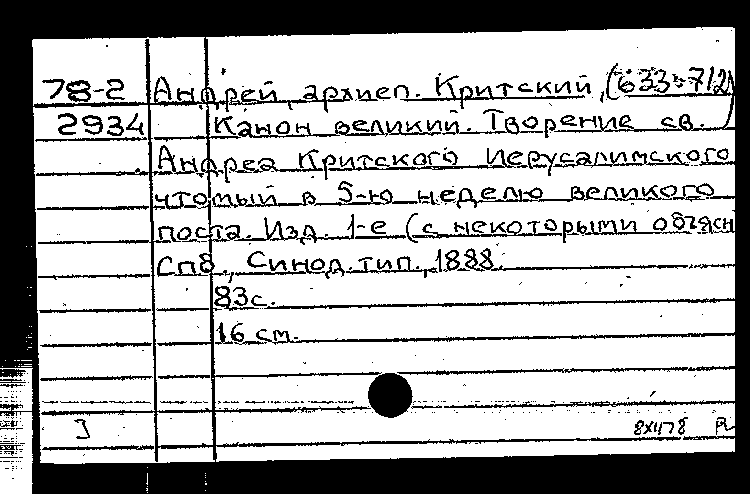 78-2 Андрей, архиеп. Критский, (633-712)
2934 Канон великий. Творение св.
Андрея Критского Иерусалимского
чтомый в 5-ю неделю великого
поста. Изд. 1-е (с некоторыми объясн
Спб., Синод. тип., 1888.
83с.
16 см.